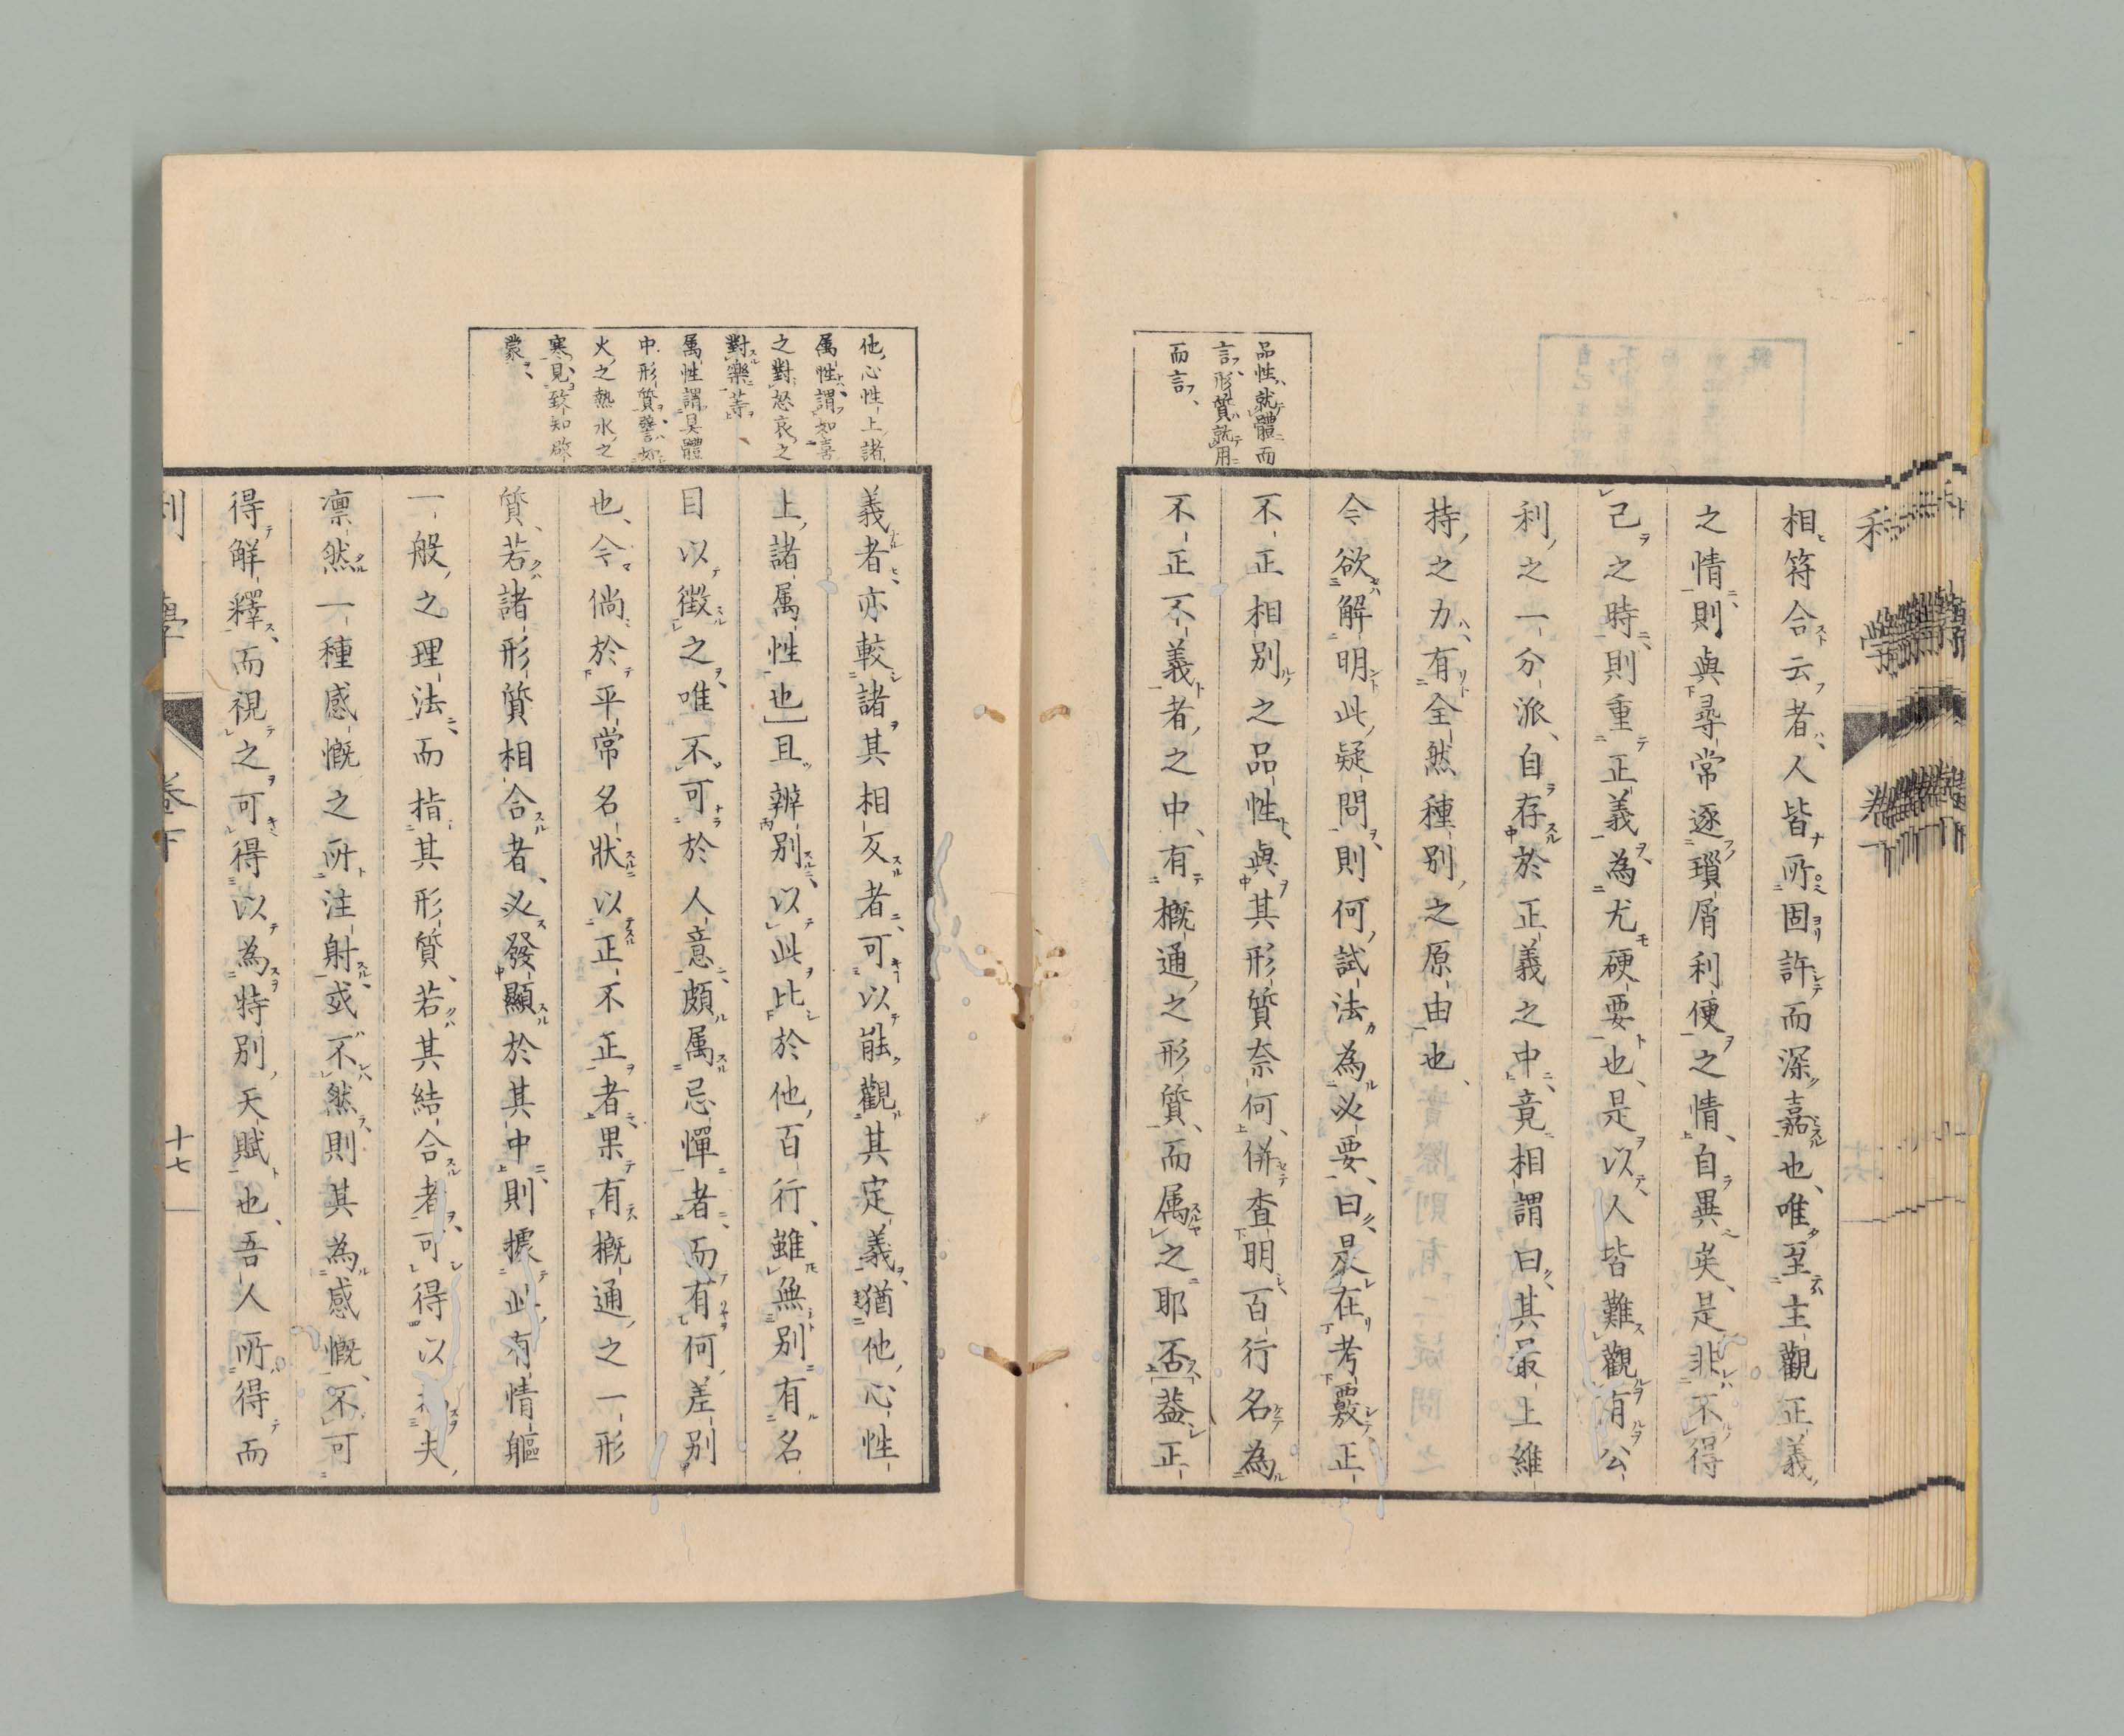 相符合云者人皆所固許而深嘉也唯至主觀正義
之情則與尋常逐瑣屑利便之情自異矣是非不得
己之時則重正義為尤硬要也是以人皆難觀有公
利之一分派自存於正義之中竟相謂曰其最上維
持之力有全然種別之原由也
今欲解明此疑問則何試法為必要曰是在考覈正
不正相別之品性與其形質奈何併查明百行名為
不正不義者之中有概通之形質而属之耶否蓋正
品性就體而
言形質就用
而言
義者亦較諸其相反者可以能觀其定義猶他心性
上諸属性也且辨別以此比於他百行雖無別有名
目以徵之唯不可於人意頗属忌憚者而有何差別
也今倘於平常名狀以正不正者果有概通之一形
質若諸形質相合者必發顯於其中則據此有情軀
一般之理法而指其形質若其結合者可得以夫
凛然一種感慨之所注射或不然則其為感慨不可
得解釋而視之可得以為特別天賦也吾人所得而
他心性上諸
属性謂如喜
之對怒哀之
對樂等
属性謂具體
中形質譬如
火之熱水之
寒見致知啓
蒙
利學 卷下 十七